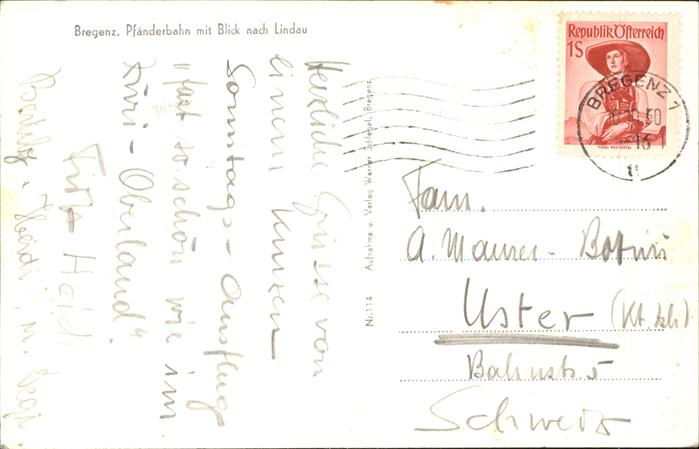 Bregenz, Pfänderbahn mit Blick nach Lindau
Republik Österreich
1S
TIROL PUSTERTAL
BREGENZ 1
50
-16
Herzliche Grüsse von
einem kurzen
Sonntags-Ausflug
"fast so schön wie im
Züri-Oberland"
Heidi
Nr. 114 Aufnahme u. Verlag Werner Schlegel, Bregenz
Fam.
A. Maurer-
Uster (Kt. Zch)
Bahnstr. 5
Schweiz